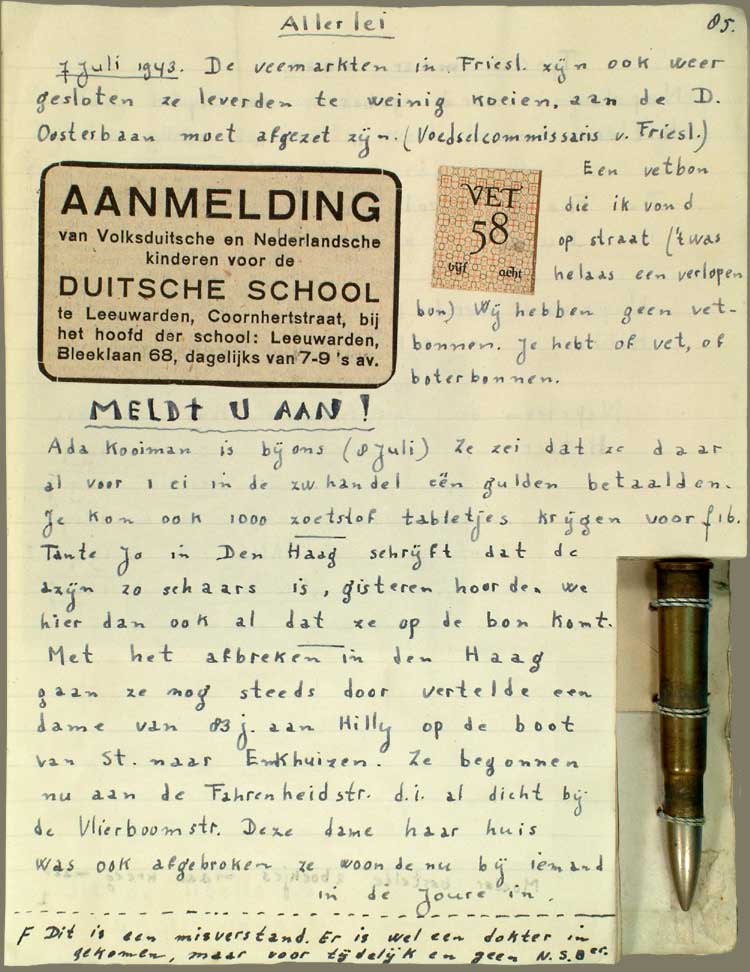 Allerlei
85.
7 Juli 1943. De veemarkten in Friesl. zijn ook weer
gesloten ze leverden te weinig koeien, aan de D.
Oosterbaan moet afgezet zijn. (Voedselcommissaris v. Friesl.)
AANMELDING
van Volksduitsche en Nederlandsche
kinderen voor de
DUITSCHE SCHOOL
te Leeuwarden, Coornhertstraat, bij
het hoofd der school: Leeuwarden,
Bleeklaan 68, dagelijks van 7-9 's av.
MELDT U AAN!
VET
58
vijf acht
Een vetbon
die ik vond
op straat ('t was
helaas een verlopen
bon) Wij hebben geen vet-
bonnen. Je hebt of vet, of
boterbonnen.
Ada Kooiman is bij ons (8 Juli) Ze zei dat ze daar
al voor 1 ei in de zw handel eën gulden betaalden.
Je kon ook 1000 zoetstof tabletjes krijgen voor f 16.
Tante Jo in Den Haag schrijft dat de
azijn zo schaars is, gisteren hoorden we
hier dan ook al dat ze op de bon komt.
Met het afbreken in den Haag
gaan ze nog steeds door vertelde een
dame van 83 j. aan Hilly op de boot
van St. naar Enkhuizen. Ze begonnen
nu aan de Fahrenheidstr. d.i. al dicht bij
de Vlierboomstr. Deze dame haar huis
was ook afgebroken ze woonde nu bij iemand
in de Joure in.
F Dit is een misverstand. Er is wel een dokter in
gekomen, maar voor tijdelijk en geen N.S.Ber.